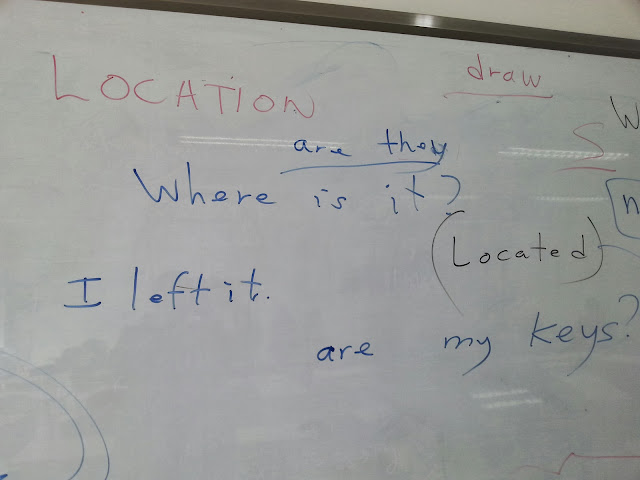 LOCATION
draw
W
S
are they
Where is it?
n
(Located)
I left it.
are my keys?